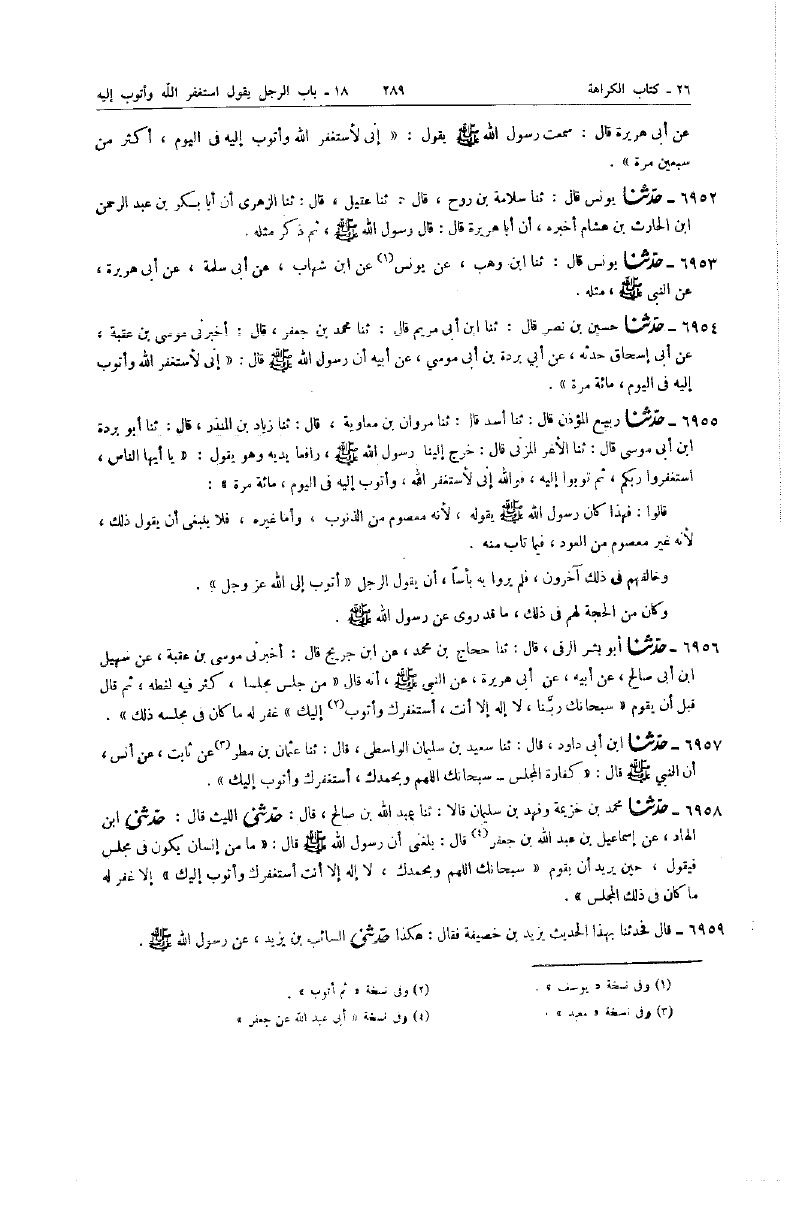 ٢٦ ـ كتاب الكراهة ٢٨٩ ١٨ ـ باب الرجل يقول استغفر الله وأتوب إليه
عن أبى هريرة قال : سمعت رسول الله ﷺ يقول : « إنى لأستغفر الله وأتوب إليه فى اليوم ، أكثر من
سبعين مرة » .
٦٩٥٢ ـ حدثنا يونس قال : ثنا سلامة بن روح ، قال : ثنا عقيل ، قال : ثنا الزهرى أن أبا بكر بن عبد الرحمن
ابن الحارث بن هشام أخبره ، أن أبا هريرة قال : قال رسول الله ﷺ ، ثم ذكر مثله .
٦٩٥٣ ـ حدثنا يونس قال : ثنا ابن وهب ، عن يونس(١) عن ابن شهاب ، عن أبى سلمة ، عن أبى هريرة ،
عن النبى ﷺ ، مثله .
٦٩٥٤ ـ حدثنا حسين بن نصر قال : ثنا ابن أبى مريم قال : ثنا محمد بن جعفر ، قال : أخبرنى موسى بن عقبة ،
عن أبى إسحاق حدثه ، عن أبي بردة بن أبى موسي ، عن أبيه أن رسول الله ﷺ قال : « إنى لأستغفر الله وأتوب
إليه فى اليوم ، مائة مرة » .
٦٩٥٥ ـ حدثنا ربيع المؤذن قال : ثنا أسد قال : ثنا مروان بن معاوية ، قال : ثنا زياد بن المنذر ، قال : ثنا أبو بردة
ابن أبى موسى قال : ثنا الأغر المزنى قال : خرج إلينا رسول الله ﷺ ، رافعا يديه وهو يقول : « يا أيها الناس ،
استغفروا ربكم ، ثم توبوا إليه ، فوالله إنى لأستغفر الله ، وأتوب إليه فى اليوم ، مائة مرة » :
قالوا : فهذا كان رسول الله ﷺ يقوله ، لأنه معصوم من الذنوب ، وأما غيره ، فلا ينبغى أن يقول ذلك ،
لأنه غير معصوم من العود ، فيما تاب منه .
وخالفهم فى ذلك آخرون ، فلم يروا به بأسا ، أن يقول الرجل « أتوب إلى الله عز وجل » .
وكان من الحجة لهم فى ذلك ، ما قد روى عن رسول الله ﷺ .
٦٩٥٦ ـ حدثنا أبو بشر الرقى ، قال : ثنا حجاج بن محمد ، عن ابن جريج قال : أخبرنى موسى بن عقبة ، عن سهيل
ابن أبى صالح ، عن أبيه ، عن أبى هريرة ، عن النبى ﷺ ، أنه قال « من جلس مجلسا ، كثر فيه لغطه ، ثم قال
قبل أن يقوم « سبحانك ربَّنا ، لا إله إلا أنت ، أستغفرك وأتوب(٢) إليك » غفر له ما كان فى مجلسه ذلك » .
٦٩٥٧ ـ حدثنا ابن أبى داود ، قال : ثنا سعيد بن سليمان الواسطى ، قال : ثنا عثمان بن مطر(٣) عن ثابت ، عن أنس ،
أن النبى ﷺ قال : « كفارة المجلس ـ سبحانك اللهم وبحمدك ، أستغفرك وأتوب إليك » .
٦٩٥٨ ـ حدثنا محمد بن خزيمة وفهد بن سليمان قالا : ثنا عبد الله بن صالح ، قال : حدثنى الليث قال : حدثنى ابن
الهاد ، عن إسماعيل بن عبد الله بن جعفر(٤) قال : بلغنى أن رسول الله ﷺ قال : « ما من إنسان يكون فى مجلس
فيقول ، حين يريد أن يقوم « سبحانك اللهم وبحمدك ، لا إله إلا أنت أستغفرك وأتوب إليك » إلا غفر له
ما كان فى ذلك المجلس » .
٦٩٥٩ ـ قال فحدثنا بهذا الحديث يزيد بن خصيفة فقال : هكذا حدثنى السائب بن يزيد ، عن رسول الله ﷺ .
(١) وفى نسخة « يوسف » . (٢) وفى نسخة « ثم أتوب » .
(٣) وفى نسخة « معبد » . (٤) وفى نسخة « أبى عبد الله عن جعفر »